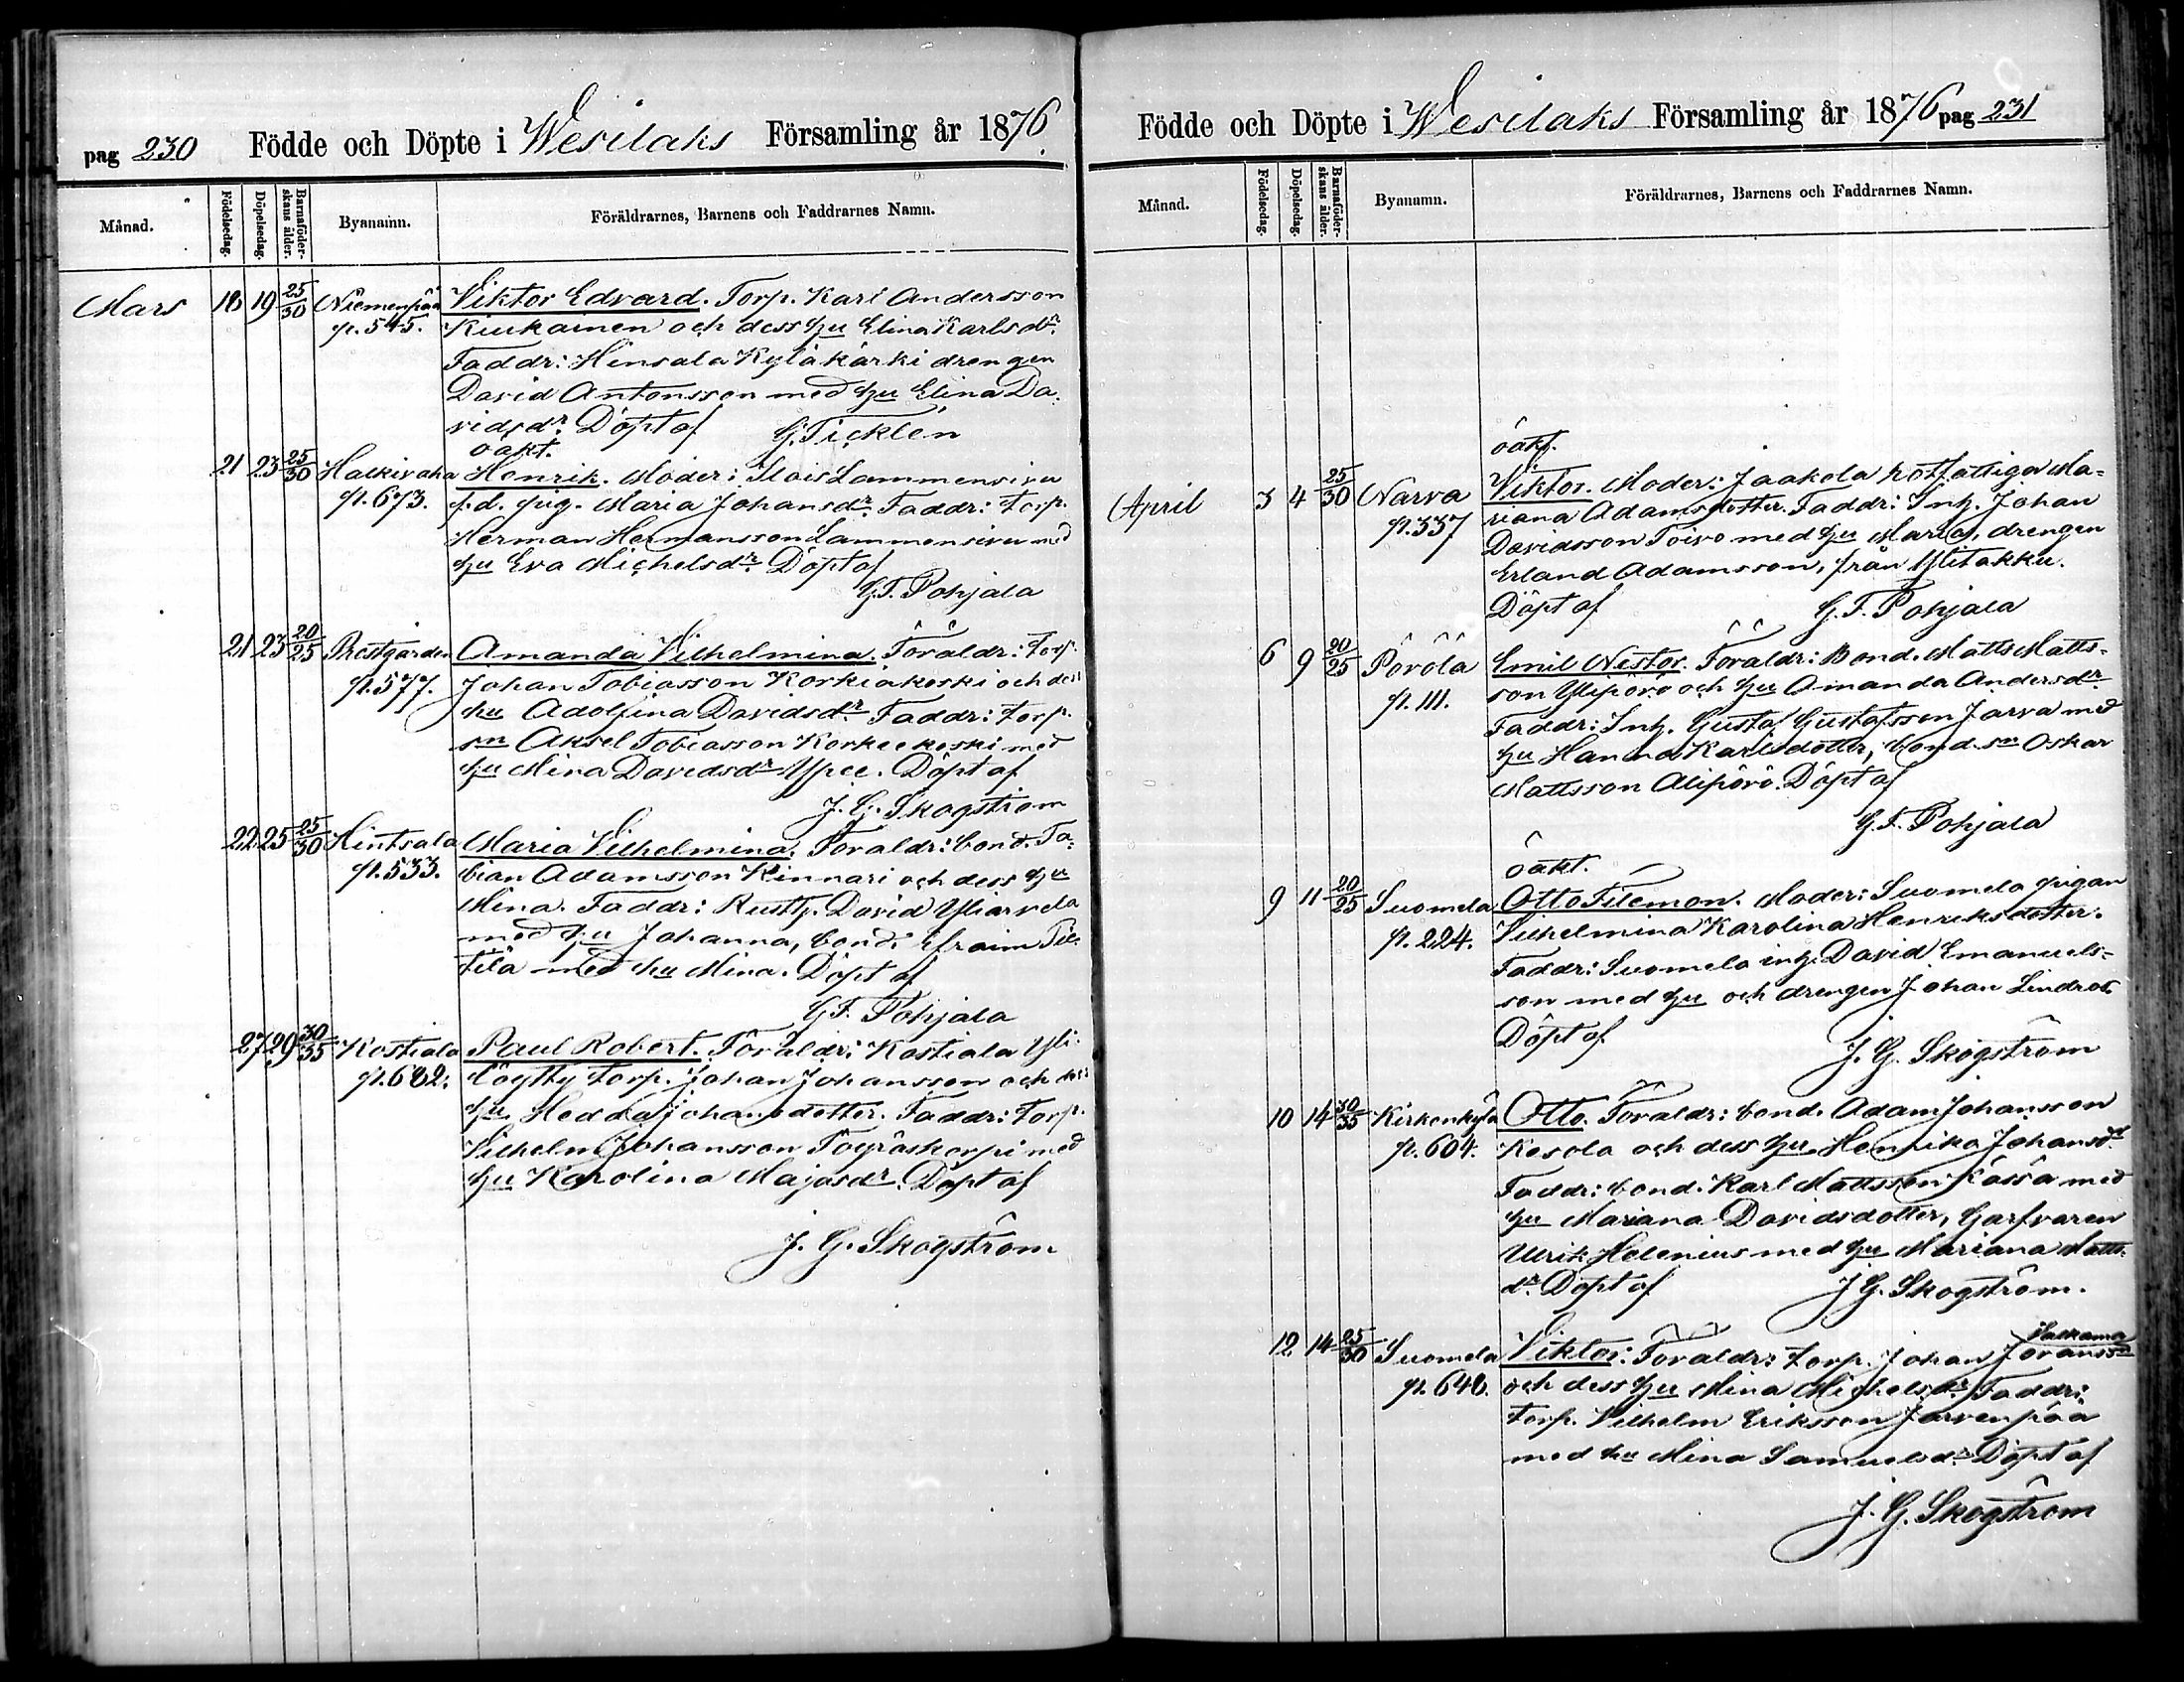 pag 230 Födde och Döpte i Wesilaks Församling år 1876.
Månad. Födelsedag. Döpelsedag. Barnaföderskans ålder. Byanamn. Föräldrarnes, Barnens och Faddrarnes Namn.
Mars 18 19 25/30 Niemenpää Viktor Edvard. Torp. Karl Andersson
p. 545. Kiukainen och dess hu Elina Karlsdr.
Faddr: Hinsala Kyläkärki drengen
David Antonsson med hu Elina Da-
vidsdr. Döpt af G. Ticklén
oäkt.
21 23 25/30 Halkivaha Henrik. Moder: Lammensivu
p. 673. f.d. pig. Maria Johansdr. Faddr: Torp.
Herman Hermansson Lammensivu med
hu Eva Michelsdr. Döpt af
G.F. Pohjala
21 23 20/25 Prestgården Amanda Vilhelmina. Föräldr: Torp.
p. 577. Johan Tobiasson Korkiakoski och dess
hu Adolfina Davidsdr. Faddr: torp.
sn Aksel Tobiasson Korkeekoski med
hu Mina Davidsdr Ypee. Döpt af
J. G. Skogström
22 25 25/30 Hintsala Maria Vilhelmina. Föräldr: bond. To-
p. 533. bian Adamsson Kinnari och dess hu
Mina. Faddr: Rusth. David Yliarvela
med hu Johanna, bond. Efraim
med hu Mina. Döpt af
G.F. Pohjala
27 29 30/35 Kostiala Paul Robert. Föräldr: Kostiala Yli-
p. 682. löytty torp. Johan Johansson och dess
hu Hedda Johansdotter. Faddr: Torp.
Vilhelm Johansson med
hu Karolina Majasdr. Döpt af
J. G. Skogström
Födde och Döpte i Wesilaks Församling år 1876 pag 231
Månad. Födelsedag. Döpelsedag. Barnaföderskans ålder. Byanamn. Föräldrarnes, Barnens och Faddrarnes Namn.
oäkt.
April 3 4 25/30 Narva Viktor. Moder: Jaakola rotfattiga Ma-
p. 337 riana Adamsdotter. Faddr: Inh. Johan
Davidsson Toivo med hu Maria, drengen
Erland Adamsson, från Ylitakku.
Döpt af G.F. Pohjala
6 9 20/25 Pörölä Emil Nestor. Föräldr: Bond. Matts Matts-
p. 111. son Ylipörö och hu Amanda Andersdr.
Faddr: Inh. Gustaf Gustafsson Järva med
hu Hanna Karlsdotter, bond.sn Oskar
Mattsson Alipörö. Döpt af
G.F. Pohjala
oäkt.
9 11 20/25 Suomela Otto Filemon. Moder: Suomela pigan
p. 224. Vilhelmina Karolina Henriksdotter.
Faddr: Suomela inh. David Emanuels-
son med hu och drengen Johan Lindros.
Döpt af J. G. Skogström
10 14 30/35 Kirkonkylä Otto. Föräldr: bond. Adam Johansson
p. 604. Kesola och dess hu Henrika Johansdr.
Faddr: bond. Karl Mattsson Kässä med
hu Mariana Davidsdotter, Garfvaren
Ulrik Helenius med hu Mariana Matts-
dr. Döpt af J G. Skogström.
12 14 25/30 Suomela Viktor. Föräldr: torp. Johan
p. 648. och dess hu Mina Michelsdr. Faddr:
Torp. Vilhelm Eriksson Järvenpää
med hu Mina Samuelsdr. Döpt af
J. G. Skogström